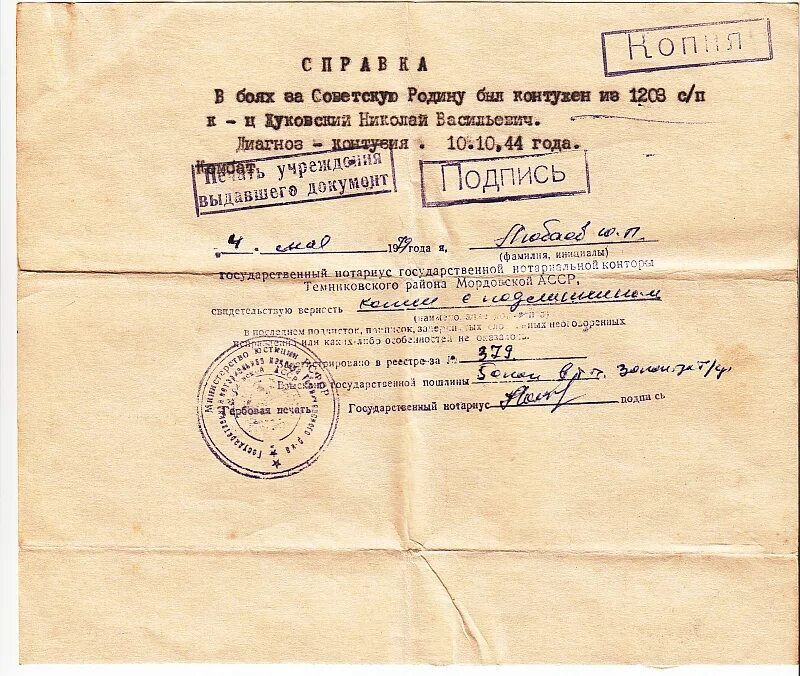 Копия
СПРАВКА
В боях за Советскую Родину был контужен из 1203 с/п
к - ц Жуковский Николай Васильевич.
Диагноз - контузия . 10.10,44 года.
Комбат
Печать учреждения
выдавшего документ
Подпись
4. мая 1979 года я,
(фамилия, инициалы)
государственный нотариус государственной нотариальной конторы
Темниковского района Мордовской АССР,
свидетельствую верность копии с подлинником
в последнем подчисток, приписок, зачеркнутых слов иных неоговоренных
исправлений или каких-либо особенностей не оказалось.
в реестре за № 379
Взыскано государственной пошлины 5 коп
Гербовая печать Государственный нотариус подпись
Министерство юстиции РСФСР